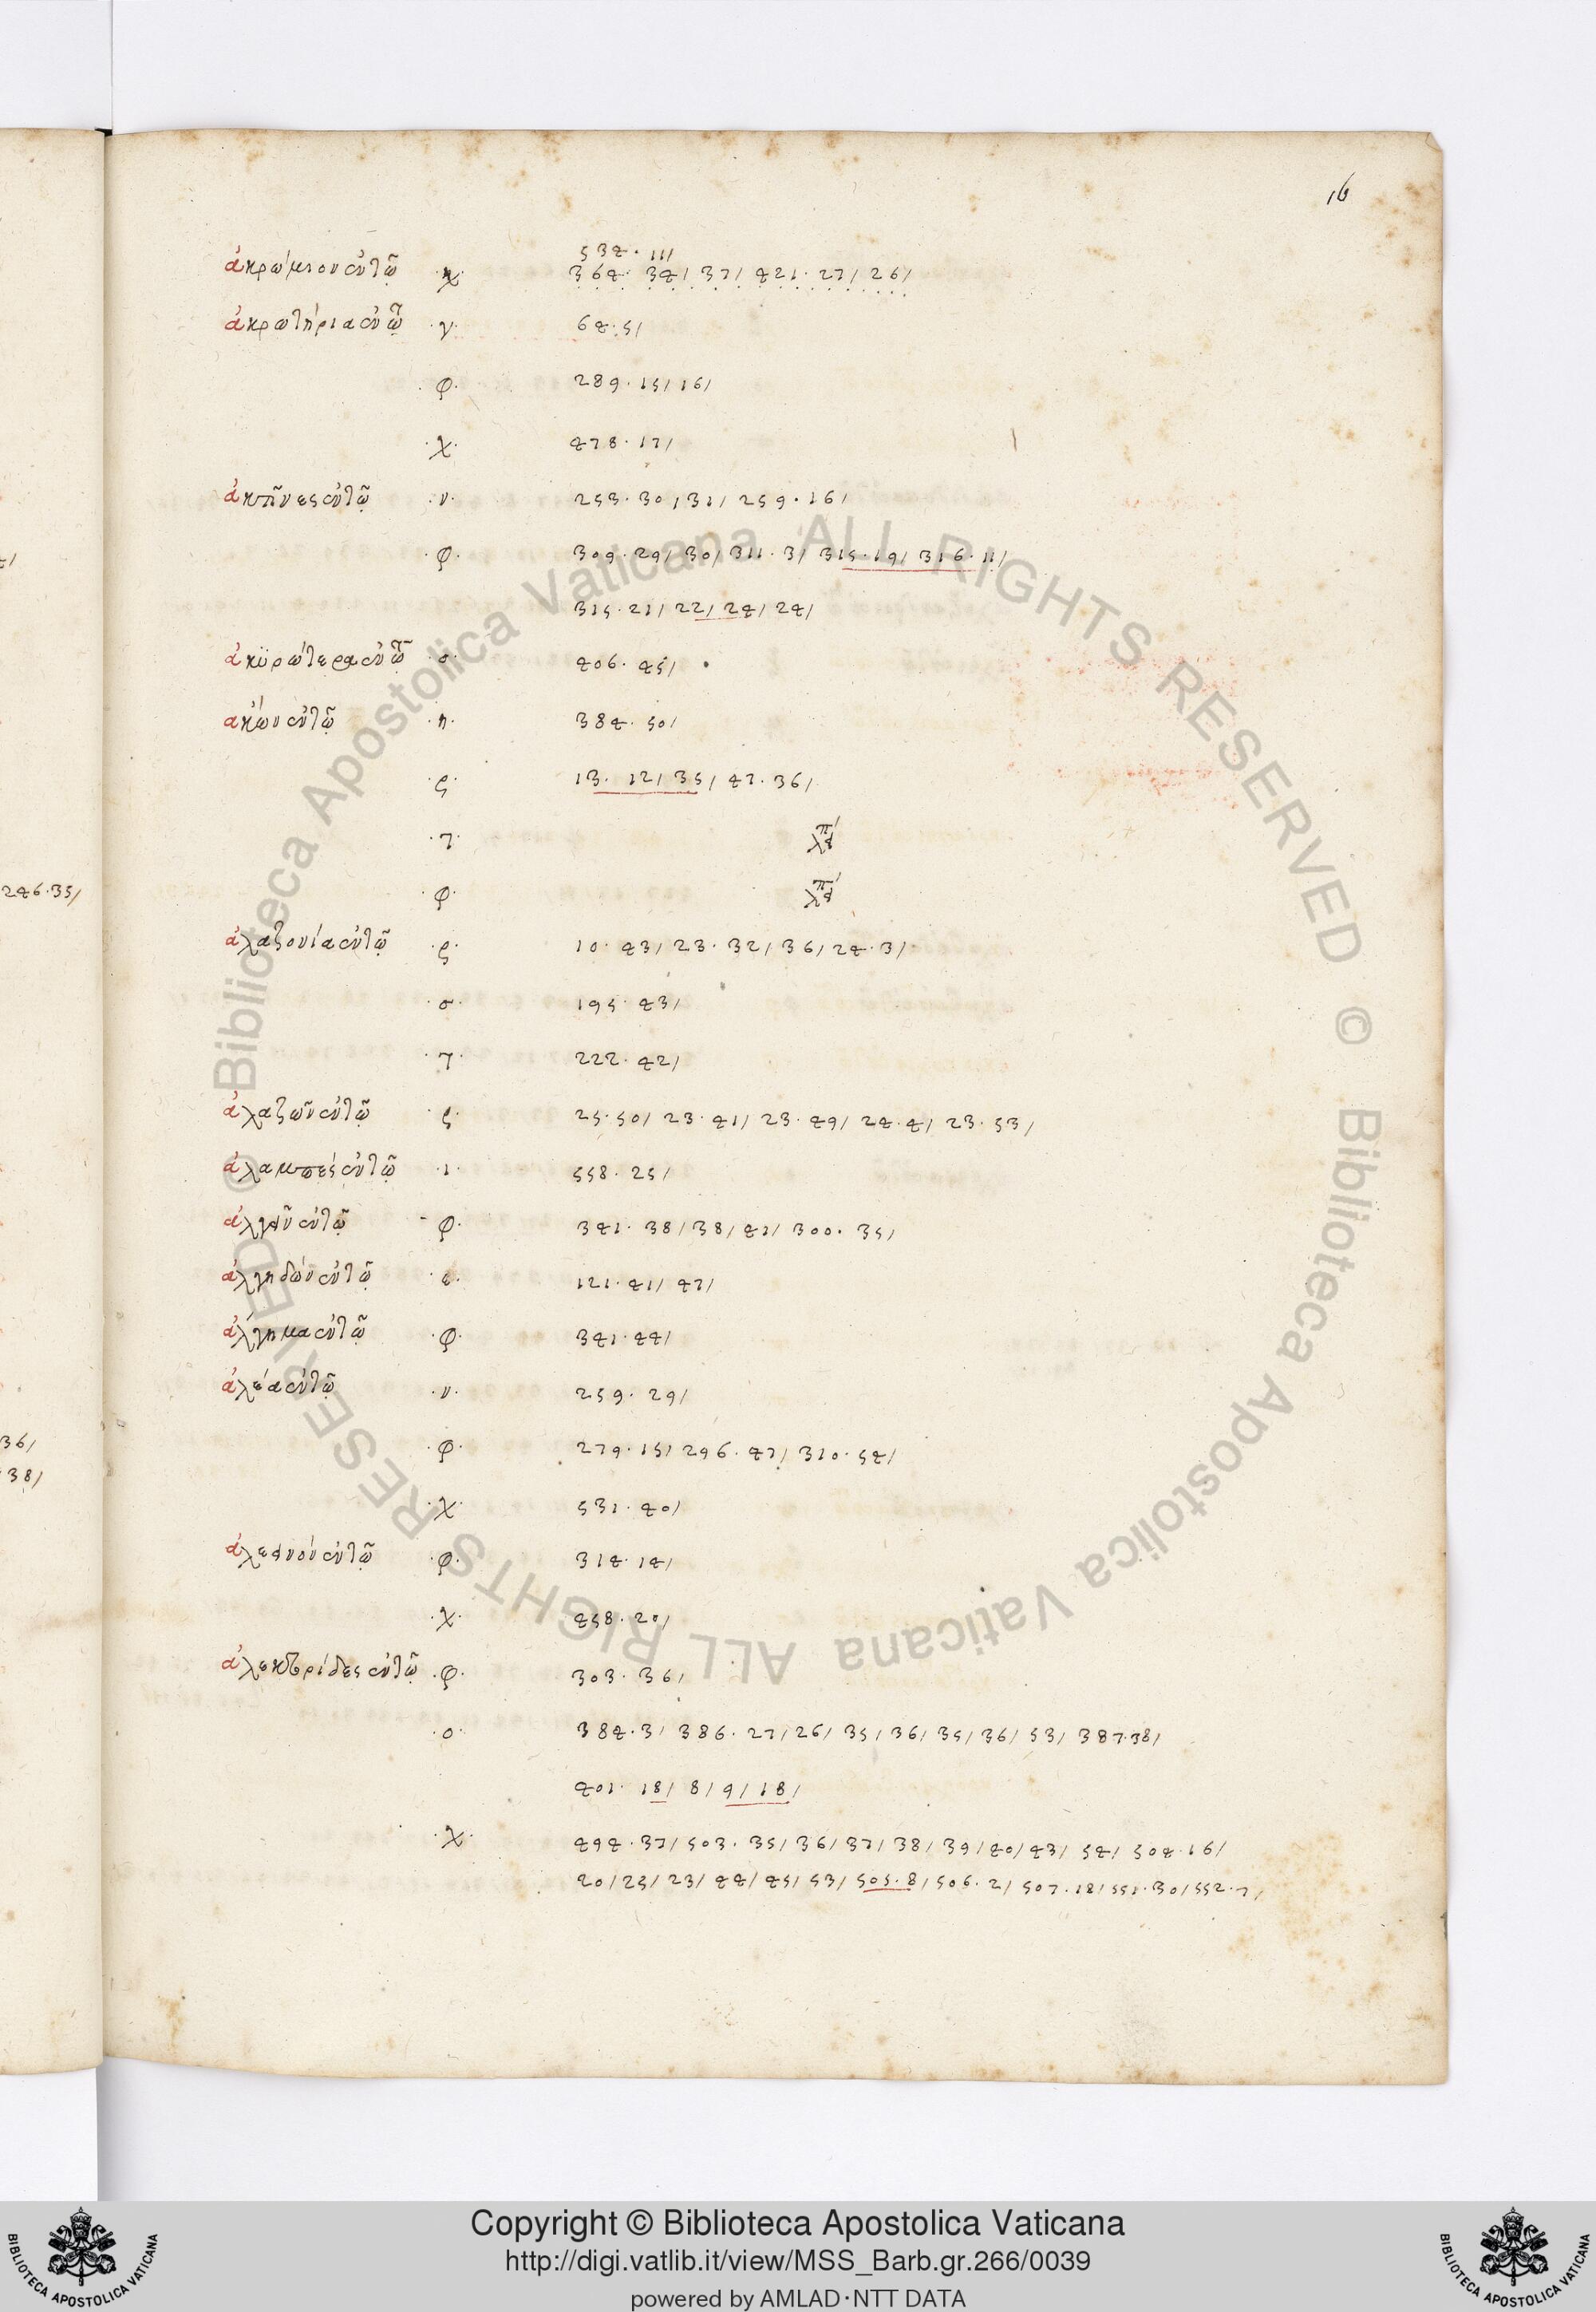 16
532. 11/
ἀκρώμιον ἐν τῷ .χ. 364. 34/ 37/ 421. 27/ 26/
ἀκρωτήρια ἐν τῷ .γ. 64. 5/
.φ. 289. 15/ 16/
.χ. 478. 17/
ἀκτῖνες ἐν τῷ .ν. 253. 30/ 31/ 259. 16/
.φ. 309. 29/ 30/ 311. 3/ 315. 19/ 316. 11/
315. 21/ 22/ 24/ 24/
ἀκϋρώτερα ἐν τῷ .ο. 406. 45/
ἀκών ἐν τῷ .π. 384. 50/
.ς. 13. 12/ 35/ 47. 36/
.τ.
.φ.
ἀλαζονία ἐν τῷ .ς. 10. 43/ 23. 32/ 36/ 24. 3/
.σ. 195. 43/
.τ. 222. 42/
ἀλαζῶν ἐν τῷ .ς. 25. 50/ 23. 41/ 23. 49/ 24. 4/ 23. 53/
ἀλαμπές ἐν τῷ .ι. 558. 25/
ἀλγεῖν ἐν τῷ .φ. 341. 38/ 38/ 41/ 300. 35/
ἀλγηδών ἐν τῷ .ε. 121. 41/ 47/
ἄλγημα ἐν τῷ .φ. 341. 44/
ἀλέα ἐν τῷ .ν. 259. 29/
.φ. 279. 15/ 296. 47/ 310. 54/
.χ. 531. 40/
ἀλεεινόν ἐν τῷ .φ. 314. 14/
.χ. 458. 20/
ἀλεκτορίδες ἐν τῷ .φ. 303. 36/
.ο. 384. 3/ 386. 27/ 26/ 35/ 36/ 35/ 36/ 53/ 387. 38/
401. 18/ 8/ 9/ 18/
.χ. 494. 37/ 503. 35/ 36/ 37/ 38/ 39/ 40/ 43/ 54/ 504. 16/
20/ 25/ 23/ 44/ 45/ 53/ 505. 8/ 506. 2/ 507. 18/ 551. 30/ 552. 7/
246. 35/
36/
38/
© Biblioteca Apostolica Vaticana ALL RIGHTS RESERVED © Biblioteca Apostolica Vaticana ALL RIGHTS RESERVED
Copyright © Biblioteca Apostolica Vaticana
http://digi.vatlib.it/view/MSS_Barb.gr.266/0039
powered by AMLAD·NTT DATA
BIBLIOTECA APOSTOLICA VATICANA
BIBLIOTECA APOSTOLICA VATICANA